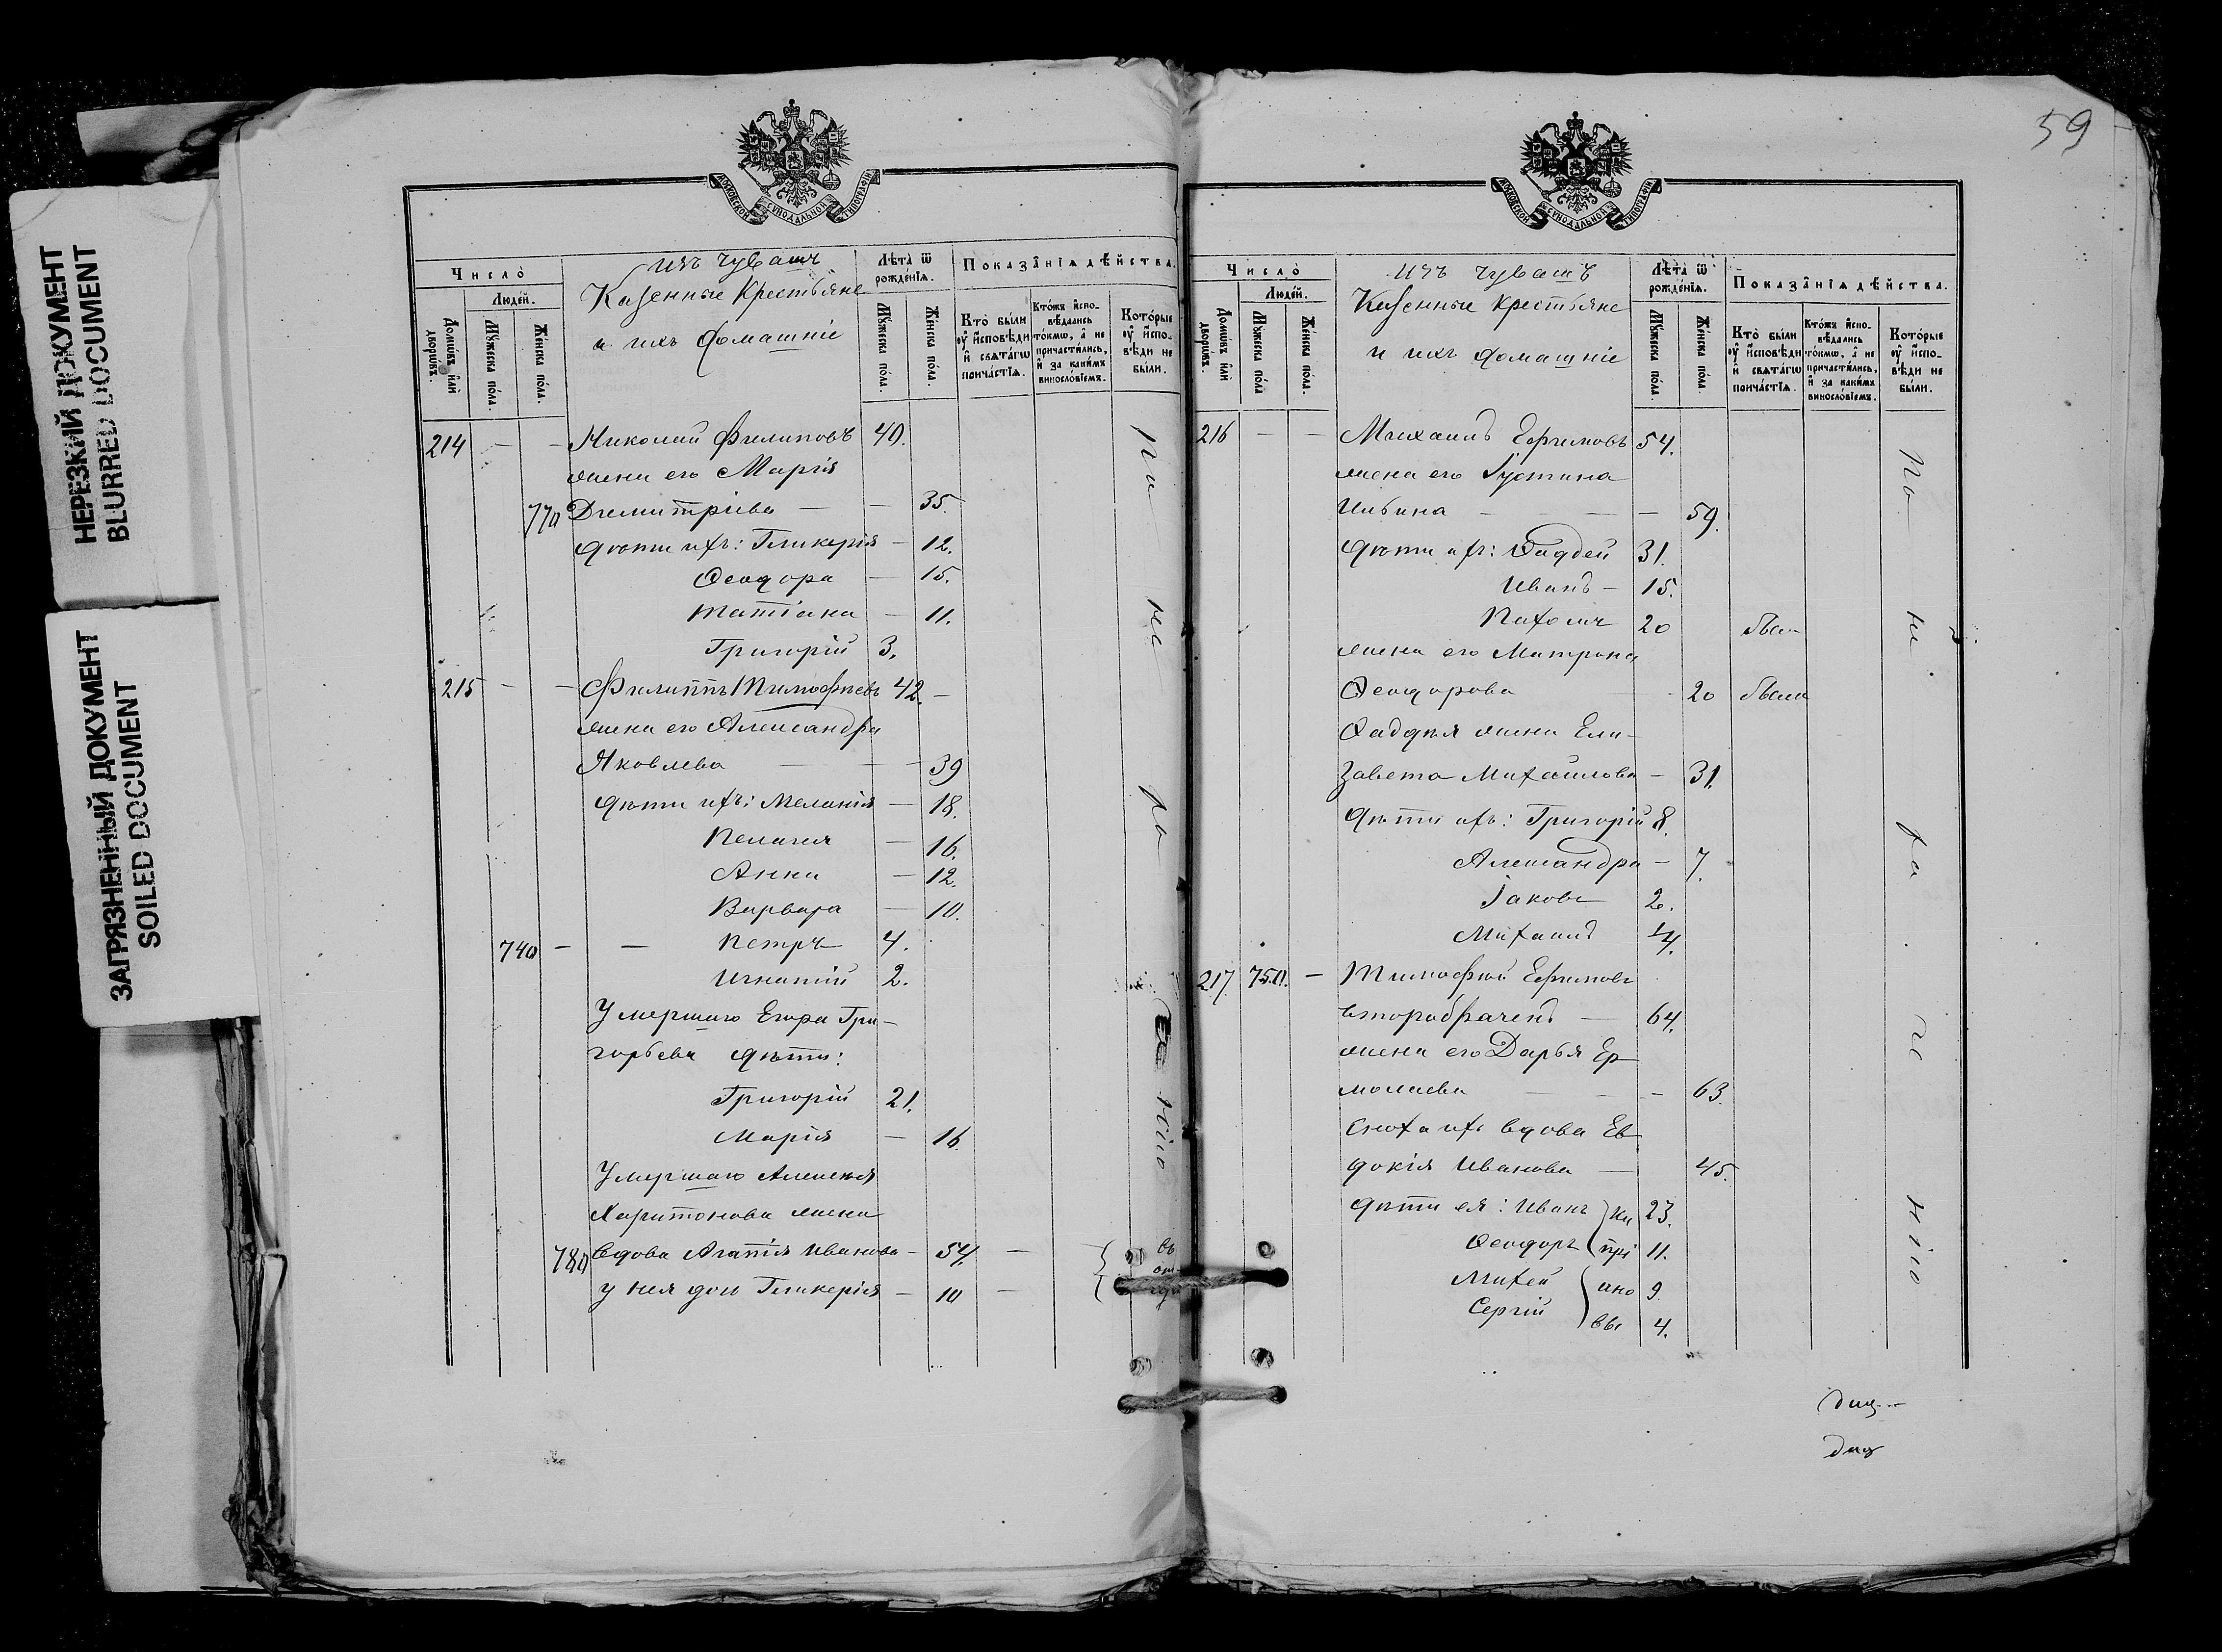 НЕРЕЗКИЙ ДОКУМЕНТ
BLURRED DOCUMENT
ЗАГРЯЗНЕННЫЙ ДОКУМЕНТ
SOILED DOCUMENT
МОСКОВСКОЙ СѴНОДАЛЬНОЙ ТИПОГРАФІИ
Число̀
Люде́й.
Домѡ́въ и҆лѝ дворѡ́въ.
Мꙋ́жеска по́ла.
Же́нска по́ла.
Изъ чувашъ
Казенные крестьяне
и ихъ домашніе
Лѣ́та ѿ рожде́нїѧ.
Мꙋ́жеска по́ла.
Же́нска по́ла.
Показа̂нїѧ дѣ́йства.
Кто̀ бы́ли ᲂу҆ и҆сповѣ́ди и҆ свѧта́гѡ прича́стїѧ.
Кто́жъ и҆спо-
вѣ́дались то́кмѡ, а҆ не причасти́лись, и҆ за каки́мъ винословїемъ.
Кото́рые ᲂу҆ и҆спо-
вѣ́ди не бы́ли.
214 — — Николай Филиповъ 40.
жена его Марія
770 Димитріева — — 35.
дѣти ихъ: Гликерія — 12.
Ѳеодора — 15.
Татіана — 11.
Григорій 3.
215 — — Филиппъ Тимофѣевъ 42. —
жена его Александра
Яковлева — — — 39
дѣти ихъ: Меланія — 18.
Пелагея — 16.
Анна — 12.
Варвара — 10.
740 — — Петръ 4.
Игнатій 2.
Умершаго Егора Гри-
горьева дѣти:
Григорій 21.
Марія — 16.
Умершаго Алексѣя
Харитонова жена
780 вдова Агапія Иванова — 54. —
у нея дочь Гликерія — 10 —
по не ра
нію
59
МОСКОВСКОЙ СѴНОДАЛЬНОЙ ТИПОГРАФІИ
Число̀
Люде́й.
Домѡ́въ и҆лѝ дворѡ́въ.
Мꙋ́жеска по́ла.
Же́нска по́ла.
Изъ чувашъ
Казенные крестьяне
и ихъ домашніе
Лѣ́та ѿ рожде́нїѧ.
Мꙋ́жеска по́ла.
Же́нска по́ла.
Показа̂нїѧ дѣ́йства.
Кто̀ бы́ли ᲂу҆ и҆сповѣ́ди и҆ свѧта́гѡ прича́стїѧ.
Кто́жъ и҆спо-
вѣ́дались то́кмѡ, а҆ не причасти́лись, и҆ за каки́мъ винословїемъ.
Кото́рые ᲂу҆ и҆спо-
вѣ́ди не бы́ли.
216 — — Михаилъ Ефимовъ 54.
жена его Іустина
Ильина — — — — 59.
дѣти ихъ: Ѳаддей 31.
Иванъ — 15.
Пахомъ 20
жена его Матрона
Ѳеодорова — 20 была
Ѳаддея жена Ели-
завета Михайлова — 31.
дѣти ихъ: Григорій 8.
Александра — 7.
Іаковъ 2.
Михаилъ
217 750. — Тимофей Ефимовъ
второбрачный — 64.
жена его Дарья Ер
молаева — — — 63.
сноха ихъ вдова Ев
докія Иванова — 45.
дѣти ея: Иванъ 23.
Ѳеодоръ 11.
Михей 9.
Сергій 4.
по не ра де нію